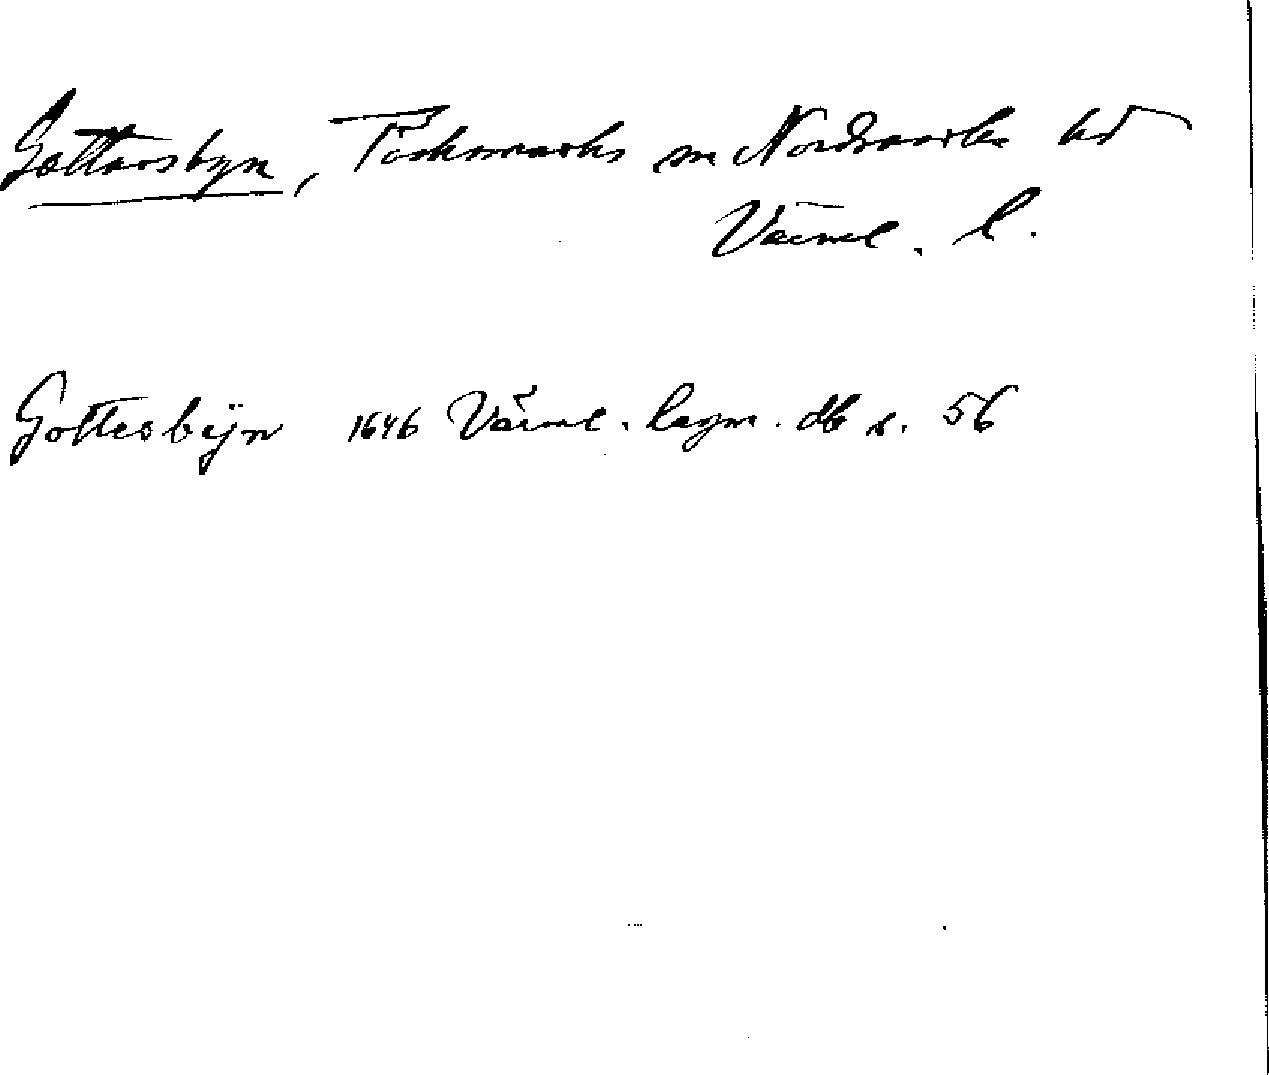 Gottarsbyn, Töcksmarks sn Nordmarks hd
Värml. l.
Gottesbÿn 1646 Värml. lagm. db s. 56